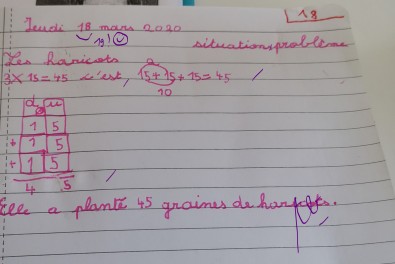 18
Jeudi 18 mars 2020
19!
situations problème
Les haricots
3 × 15 = 45 c'est, 15 + 15 + 15 = 45
10
d u
1 5
+ 1 5
+ 1 5
4 5
Elle a planté 45 graines de haricots.